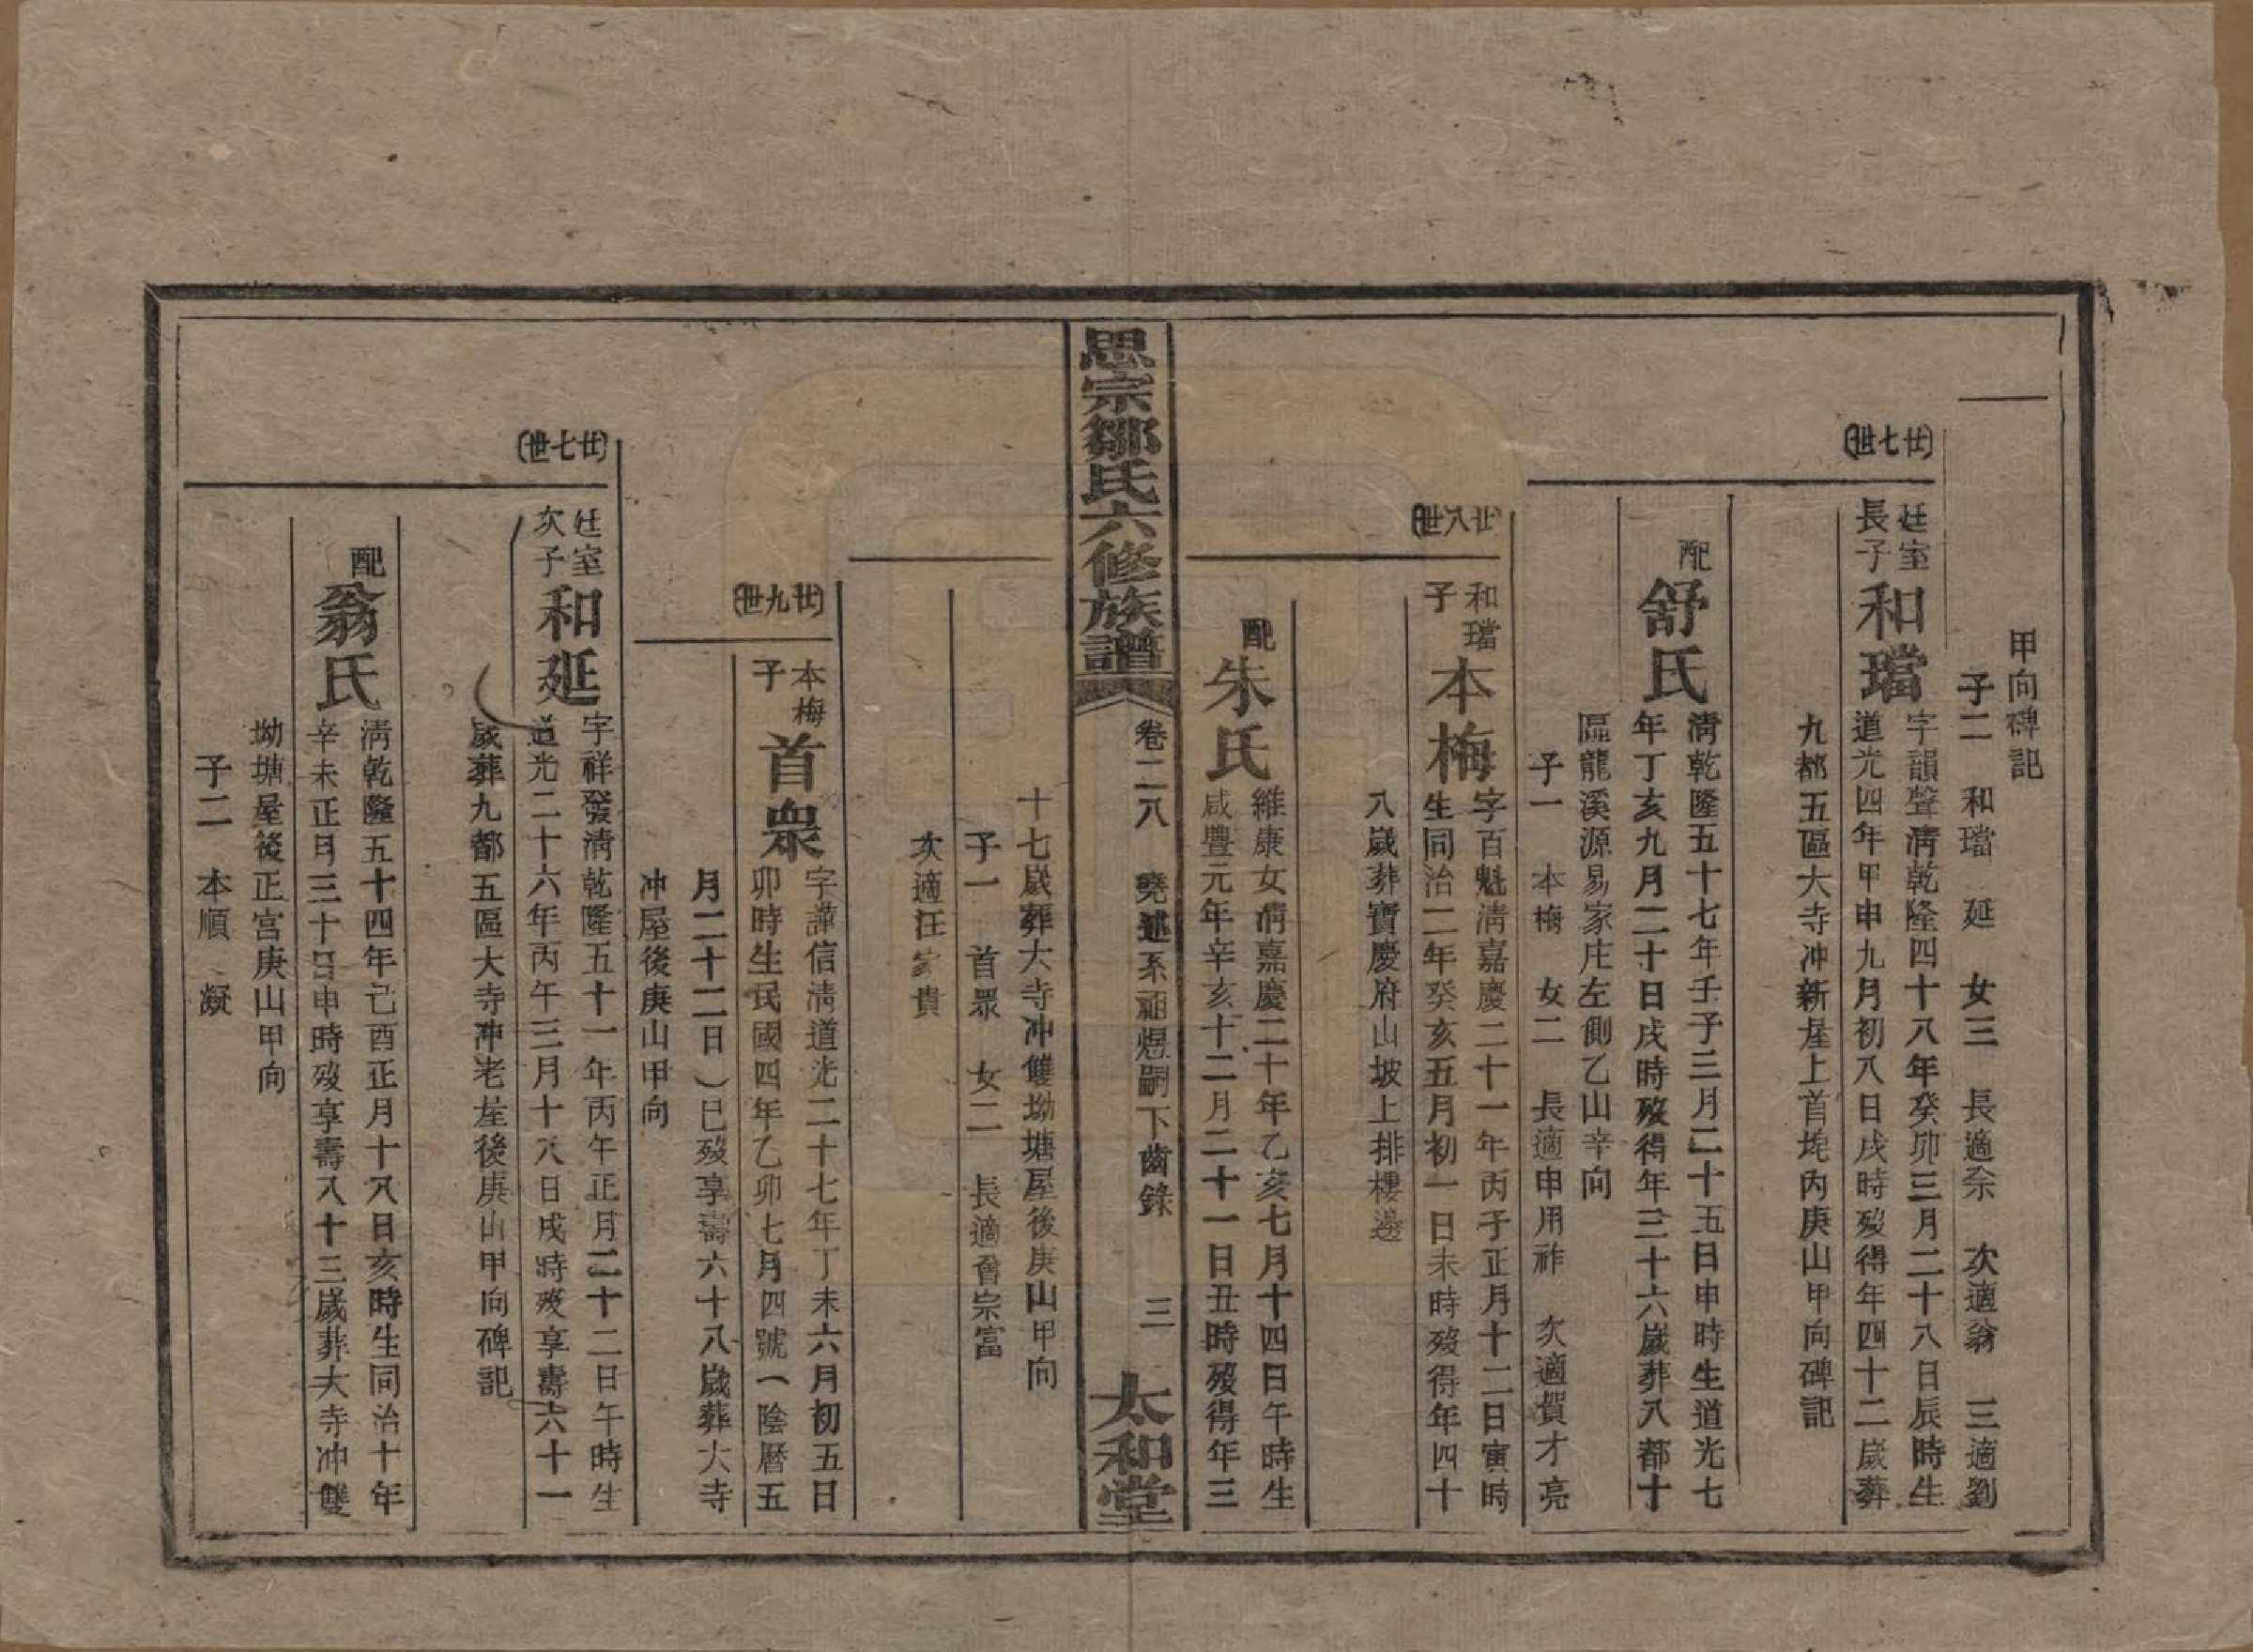 甲向碑記
子二　和璫　延　女三　長適余　次適翁　三適劉
廿七世
廷室長子
和璫
字韻聲清乾隆四十八年癸卯三月二十八日辰時生
道光四年甲申九月初八日戌時歿得年四十二歲葬
九都五區大寺冲新屋上首垅內庚山甲向碑記
配
舒氏
清乾隆五十七年壬子三月二十五日申時生道光七
年丁亥九月二十日戌時歿得年三十六歲葬八都十
區龍溪源易家庄左側乙山辛向
子一　本梅　女二　長適申用祚　次適賀才亮
廿八世
和璫子
本梅
字百魁清嘉慶二十一年丙子正月十二日寅時
生同治二年癸亥五月初一日未時歿得年四十
八歲葬寶慶府山坡上排樓邊
配
朱氏
維康女清嘉慶二十年乙亥七月十四日午時生
咸豐元年辛亥十二月二十一日丑時歿得年三
思宗鄒氏六修族譜
卷二八　堯述系祖煜嗣下齒錄　三
太和堂
十七歲葬大寺冲雙坳塘屋後庚山甲向
子一　首眾　女二　長適曾宗富
次適汪家貴
廿九世
本梅子
首眾
字謹信清道光二十七年丁未六月初五日
卯時生民國四年乙卯七月四號（陰曆五
月二十二日）巳歿享壽六十八歲葬大寺
冲屋後庚山甲向
廿七世
廷室次子
和延
字祥發清乾隆五十一年丙午正月二十二日午時生
道光二十六年丙午三月十八日戌時歿享壽六十一
歲葬九都五區大寺冲老屋後庚山甲向碑記
配
翁氏
清乾隆五十四年己酉正月十八日亥時生同治十年
辛未正月三十日申時歿享壽八十三歲葬大寺冲雙
坳塘屋後正宫庚山甲向
子二　本順　凝